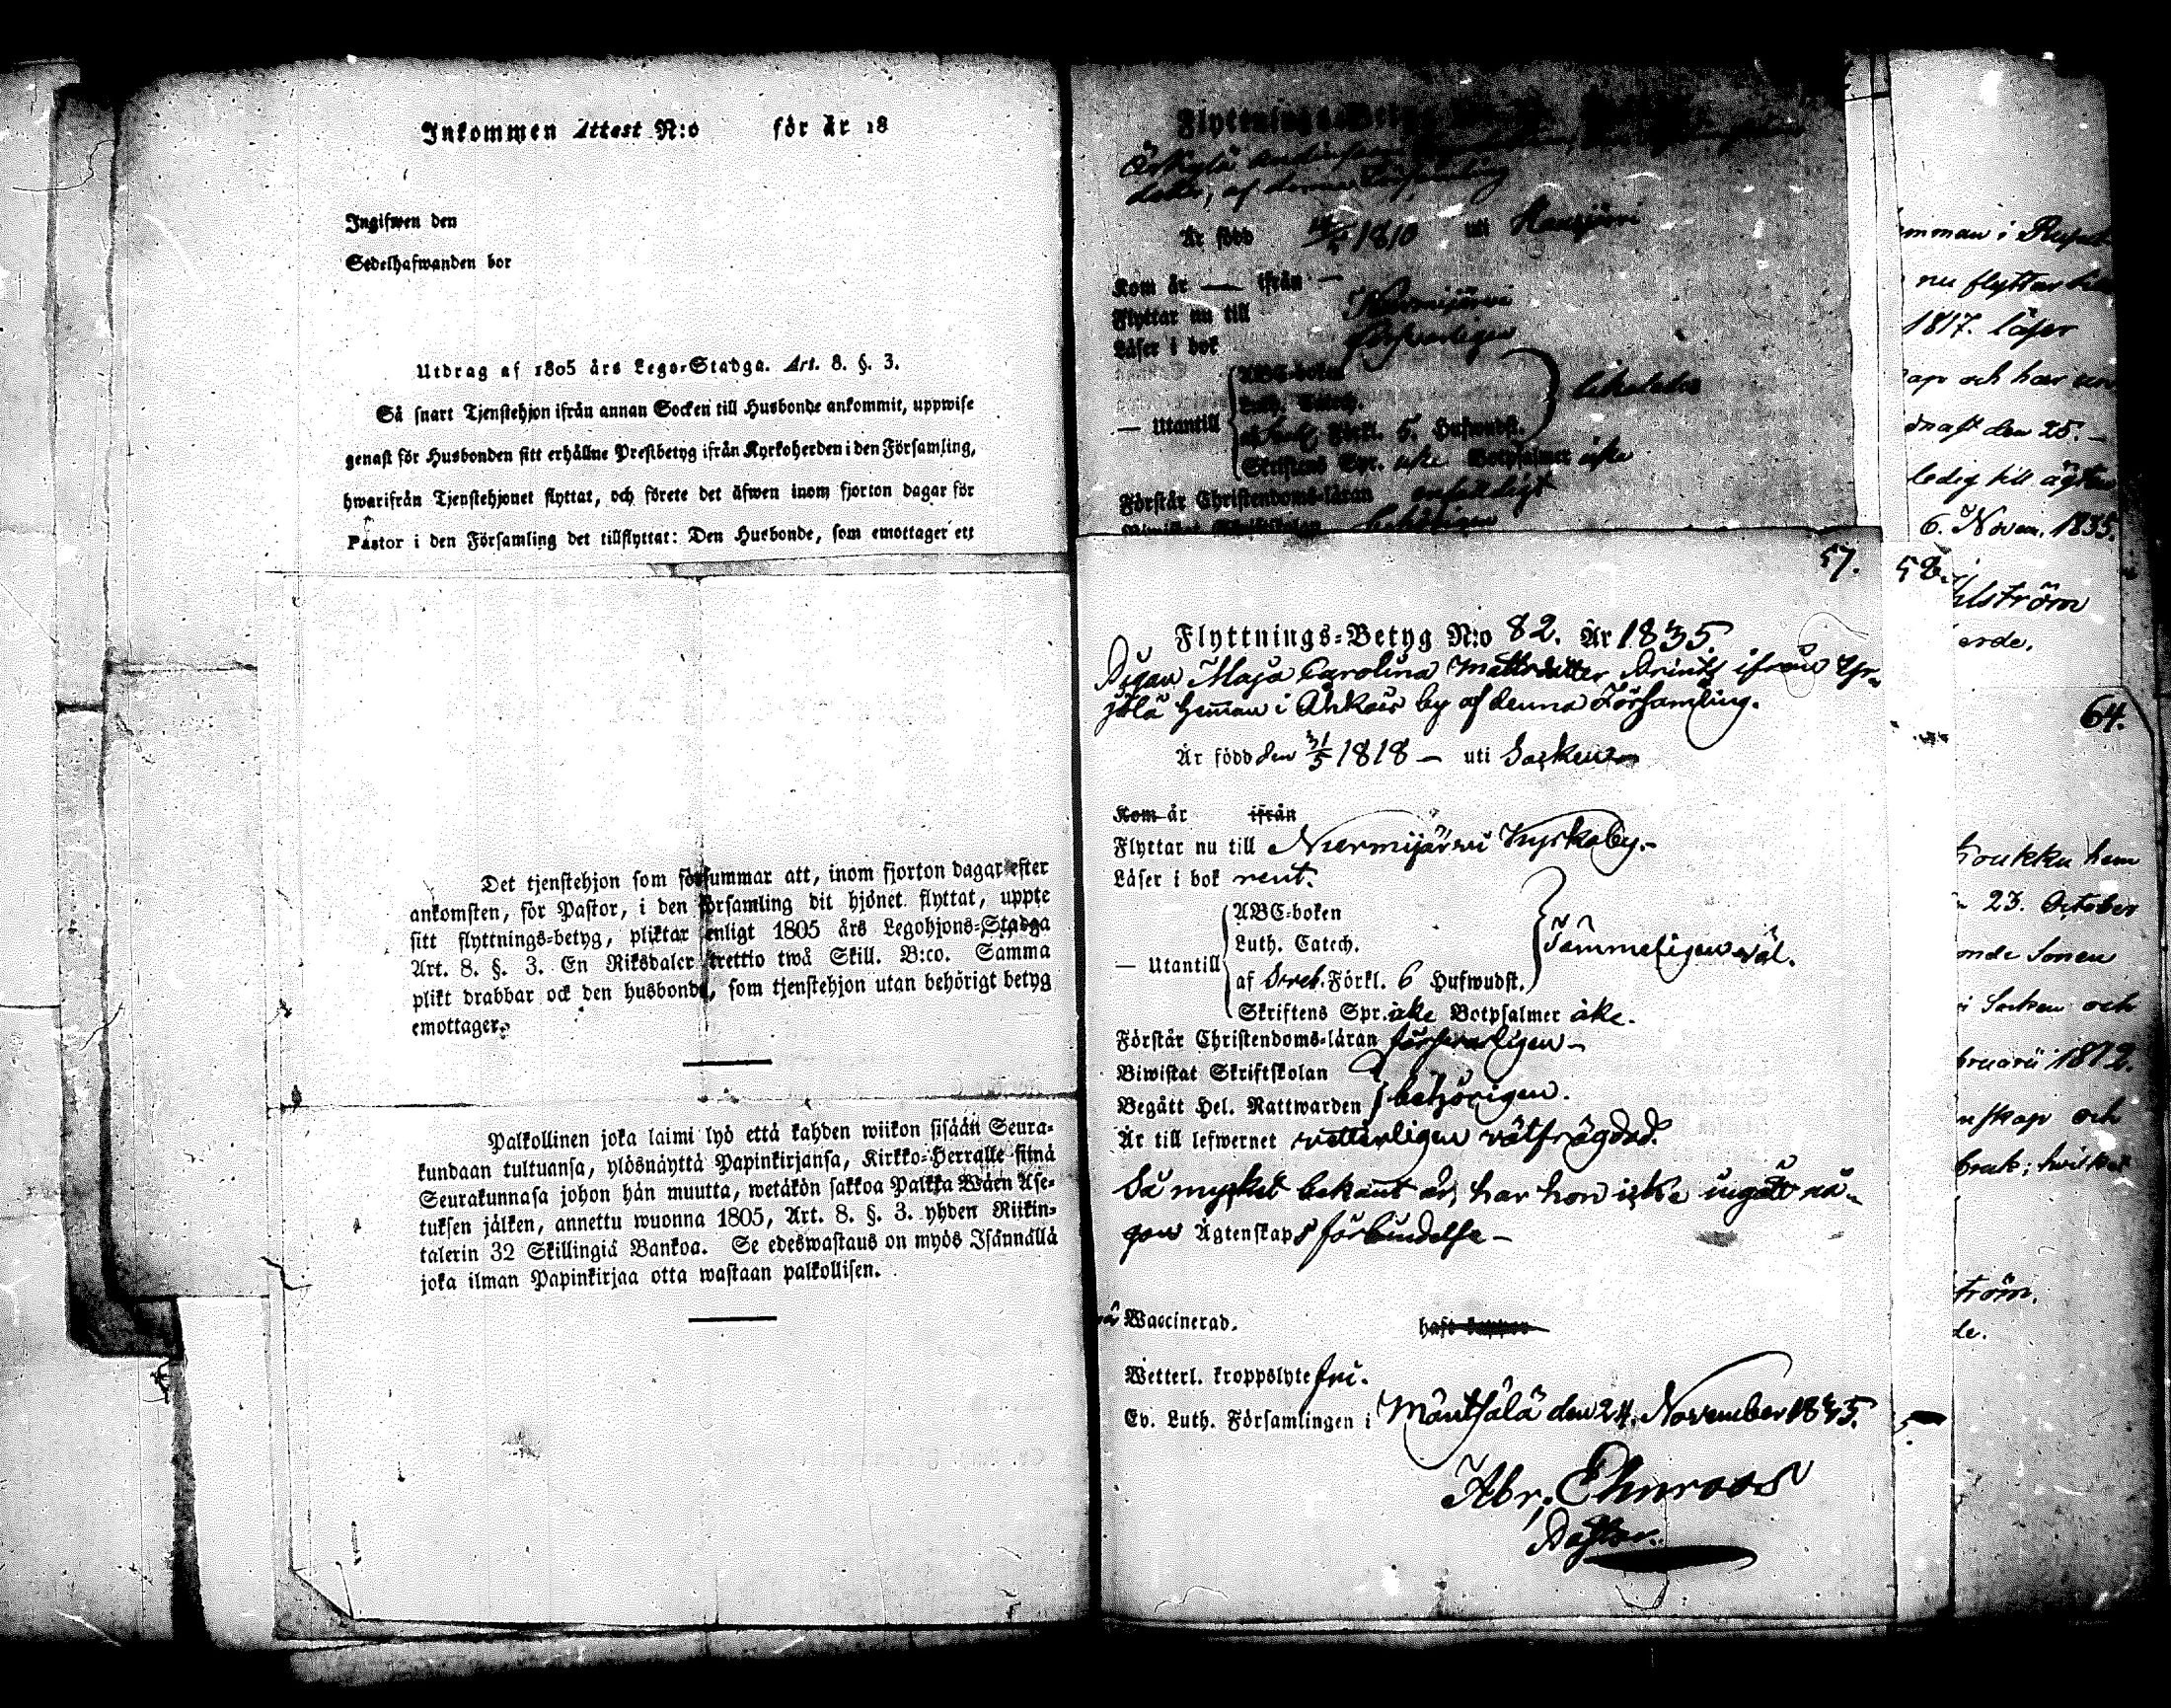 Inkommen Attest N:o för år 18
Ingifwen den
Sedelhafwanden bor
Utdrag af 1805 års Lego-Stadga. Art. 8. §. 3.
Så snart Tjenstehjon ifrån annan Socken till Husbonde ankommit, uppwise
genast för Husbonden sitt erhållne Prestbetyg ifrån Kyrkoherden i den Församling,
hwarifrån Tjenstehjonet flyttat, och förete det äfwen inom fjorton dagar för
Pastor i den Församling det tillflyttat: Den Husbonde, som emottager ett
Det tjenstehjon som försummar att, inom fjorton dagar efter
ankomsten, för Pastor, i den församling dit hjonet flyttat, uppte
sitt flyttnings-betyg, pliktar enligt 1805 års Legohjons-Stadga
Art. 8. §. 3. En Riksdaler trettio twå Skill. B:co. Samma
plikt drabbar ock den husbonde, som tjenstehjon utan behörigt betyg
emottager.
Palkollinen joka laimi lyö että kahden wiikon sisään Seura-
kundaan tultuansa, ylösnäyttä Papinkirjansa, Kirkko-Herralle siinä
Seurakunnasa johon hän muutta, wetäkön sakkoa Palkka Wäen Ase-
tuksen jälken, annettu wuonna 1805, Art. 8. §. 3. yhden Riikin-
talerin 32 Skillingiä Bankoa. Se edeswastaus on myös Isännällä
joka ilman Papinkirjaa otta wastaan palkollisen.
Flyttnings-Betyg
af denna Församling
Är född 1810 uti Hausjärvi
Kom år — ifrån —
Flyttar nu till Nurmijärvi
Läser i bok försvarligen
ABC-boken
Luth. Catech.
— Utantill
af Förkl. 5. Hufwudst.
Skriftens Spr. icke Botpsalmer icke
Förstår Christendoms-läran enfaldigt
Biwistat Skriftskolan behörigen
57.
Flyttnings-Betyg N:o 82. År 1835.
Pigan Maja Carolina Mattsdotter ifrån
jölä heman i by af denna Församling.
Är född den 31/5 1818 — uti Socknen
Kom år ifrån
Flyttar nu till Nurmijärvi Kyrkoby.
Läser i bok rent.
ABC-boken
Luth. Catech.
— Utantill
af Sveb. Förkl. 6 Hufwudst.
Tämmeligen väl.
Skriftens Spr. icke Botpsalmer icke.
Förstår Christendoms-läran försvarligen —
Biwistat Skriftskolan
Begått Hel. Nattwarden
behörigen.
Är till lefwernet vetterligen
Så mycket bekant är, har hon icke ingått nå-
gon Ägtenskaps förbindelse —
Waccinerad. haft koppor
Wetterl. kroppslyte fri.
Ev. Luth. Församlingen i Mäntsälä den 24. November 1835.
Abr. Ehnroos
Pastor.
58.
nu flyttar
1817. läser
och har
den 25. —
ledig till
6. Novem. 1835.
64.
23. October
Sonen
Socken och
1812.
och